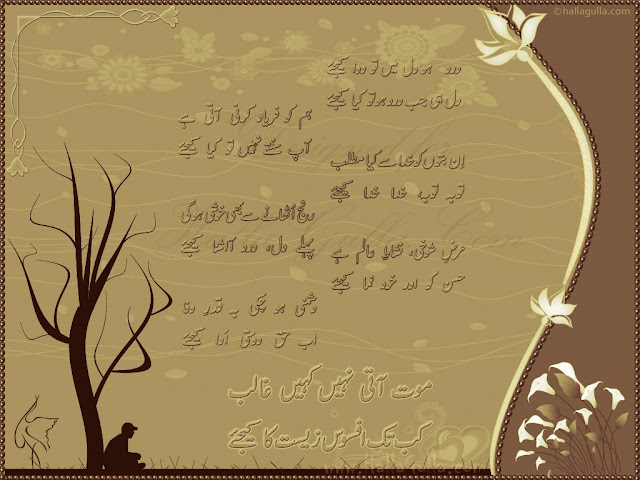 ©hallagulla.com
درد ہو دل میں تو دوا کیجئے
دل ہی جب درد ہو تو کیا کیجئے
ہم کو فریاد کرنی آتی ہے
آپ سنتے نہیں تو کیا کیجئے
اِن بتوں کو خدا سے کیا مطلب
توبہ توبہ، خدا خدا کیجئے
رنج اُٹھانے سے بھی خوشی ہو گی
پہلے دل، درد آشنا کیجئے
عرضِ شوخی، نشاطِ عالم ہے
حسن کو اور خود نما کیجئے
دشمنی ہو چکی بہ قدرِ وفا
اب حق دوستی اَدا کیجئے
موت آتی نہیں کہیں غالب
کب تک افسوس زیست کا کیجئے